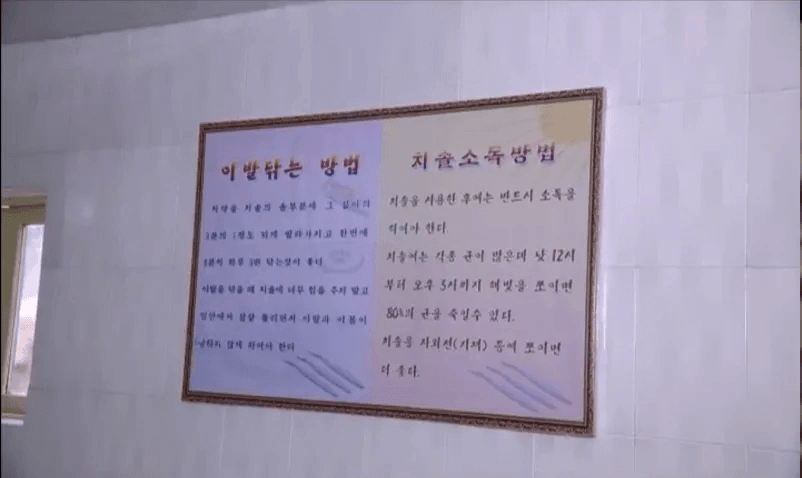 이발닦는 방법
치약을 치솔의 솔부분에 그 길이의
3분의 1정도 되게 발라가지고 한번에
3분씩 하루 3번 닦는것이 좋다
이발을 닦을 때 치솔에 너무 힘을 주지 말고
입안에서 살살 돌리면서 이발과 이몸이
않게 하여야 한다
치솔소독방법
치솔을 사용한 후에는 반드시 소독을
하여야 한다.
치솔에는 각종 균이 많은데 낮 12시
부터 오후 5시까지 해빛을 쪼이면
80%의 균을 죽일수 있다.
치솔을 자외선(기재) 등에 쪼이면
더 좋다.